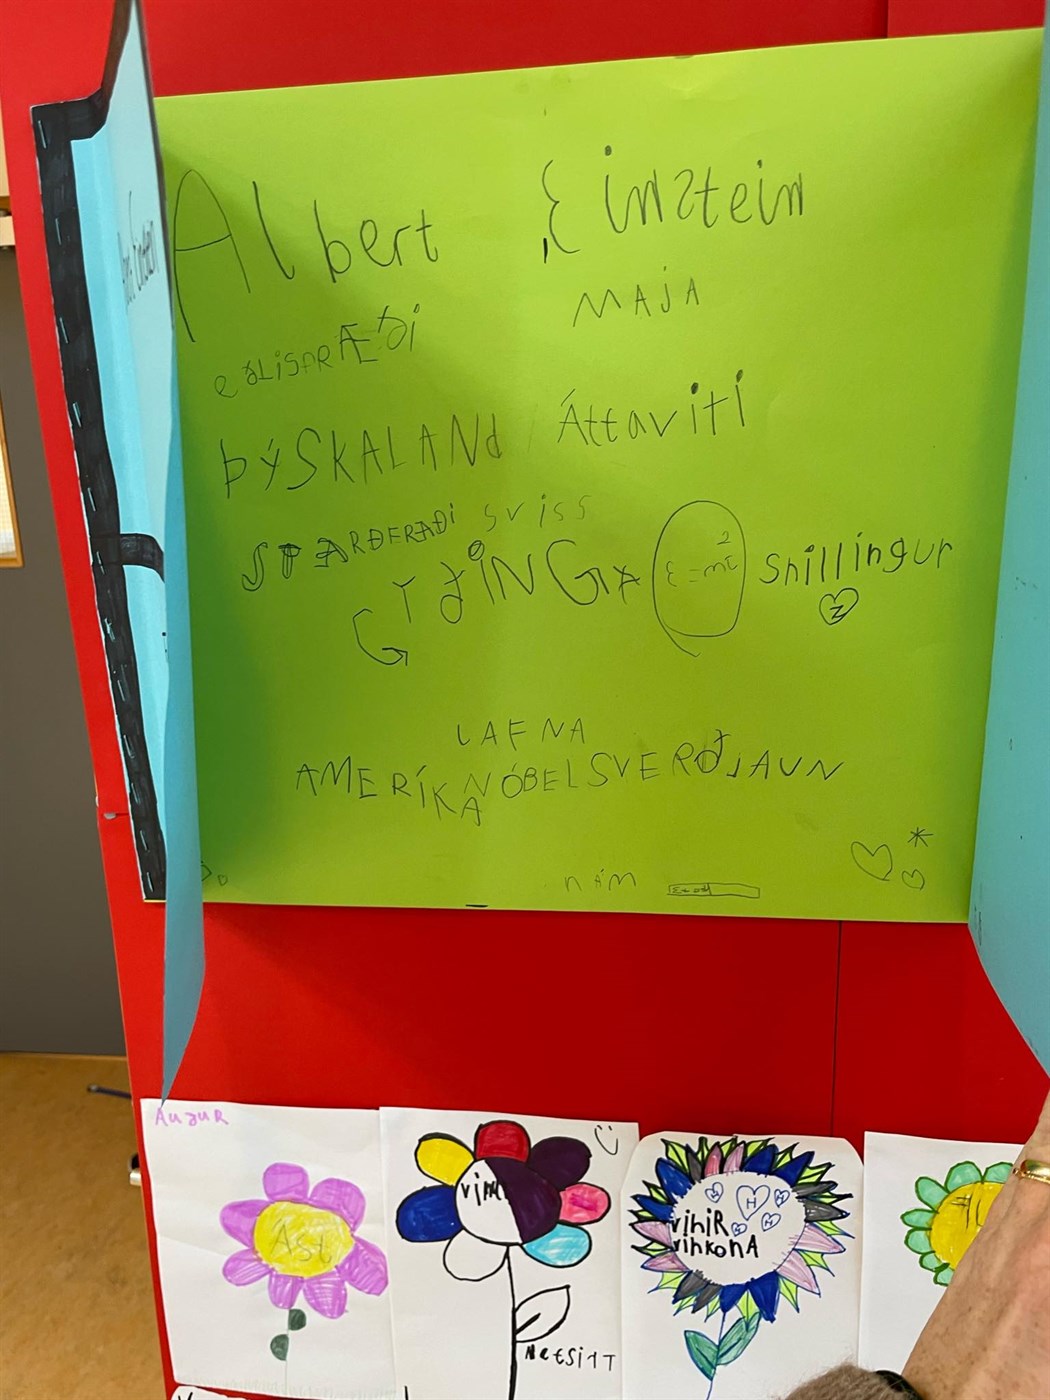 Albert Einstein
MAJA
eðLiSfRÆði
ÞÝSKALANd Áttaviti
STÆRÐFRÆÐi SViSS
GYðiNGA E=mc² Snillingur
Z
LAFNA
AMERÍKA NÓBELSVERðJAUN
NÁM
Auður
Ást
viNIR
vinkonA
H